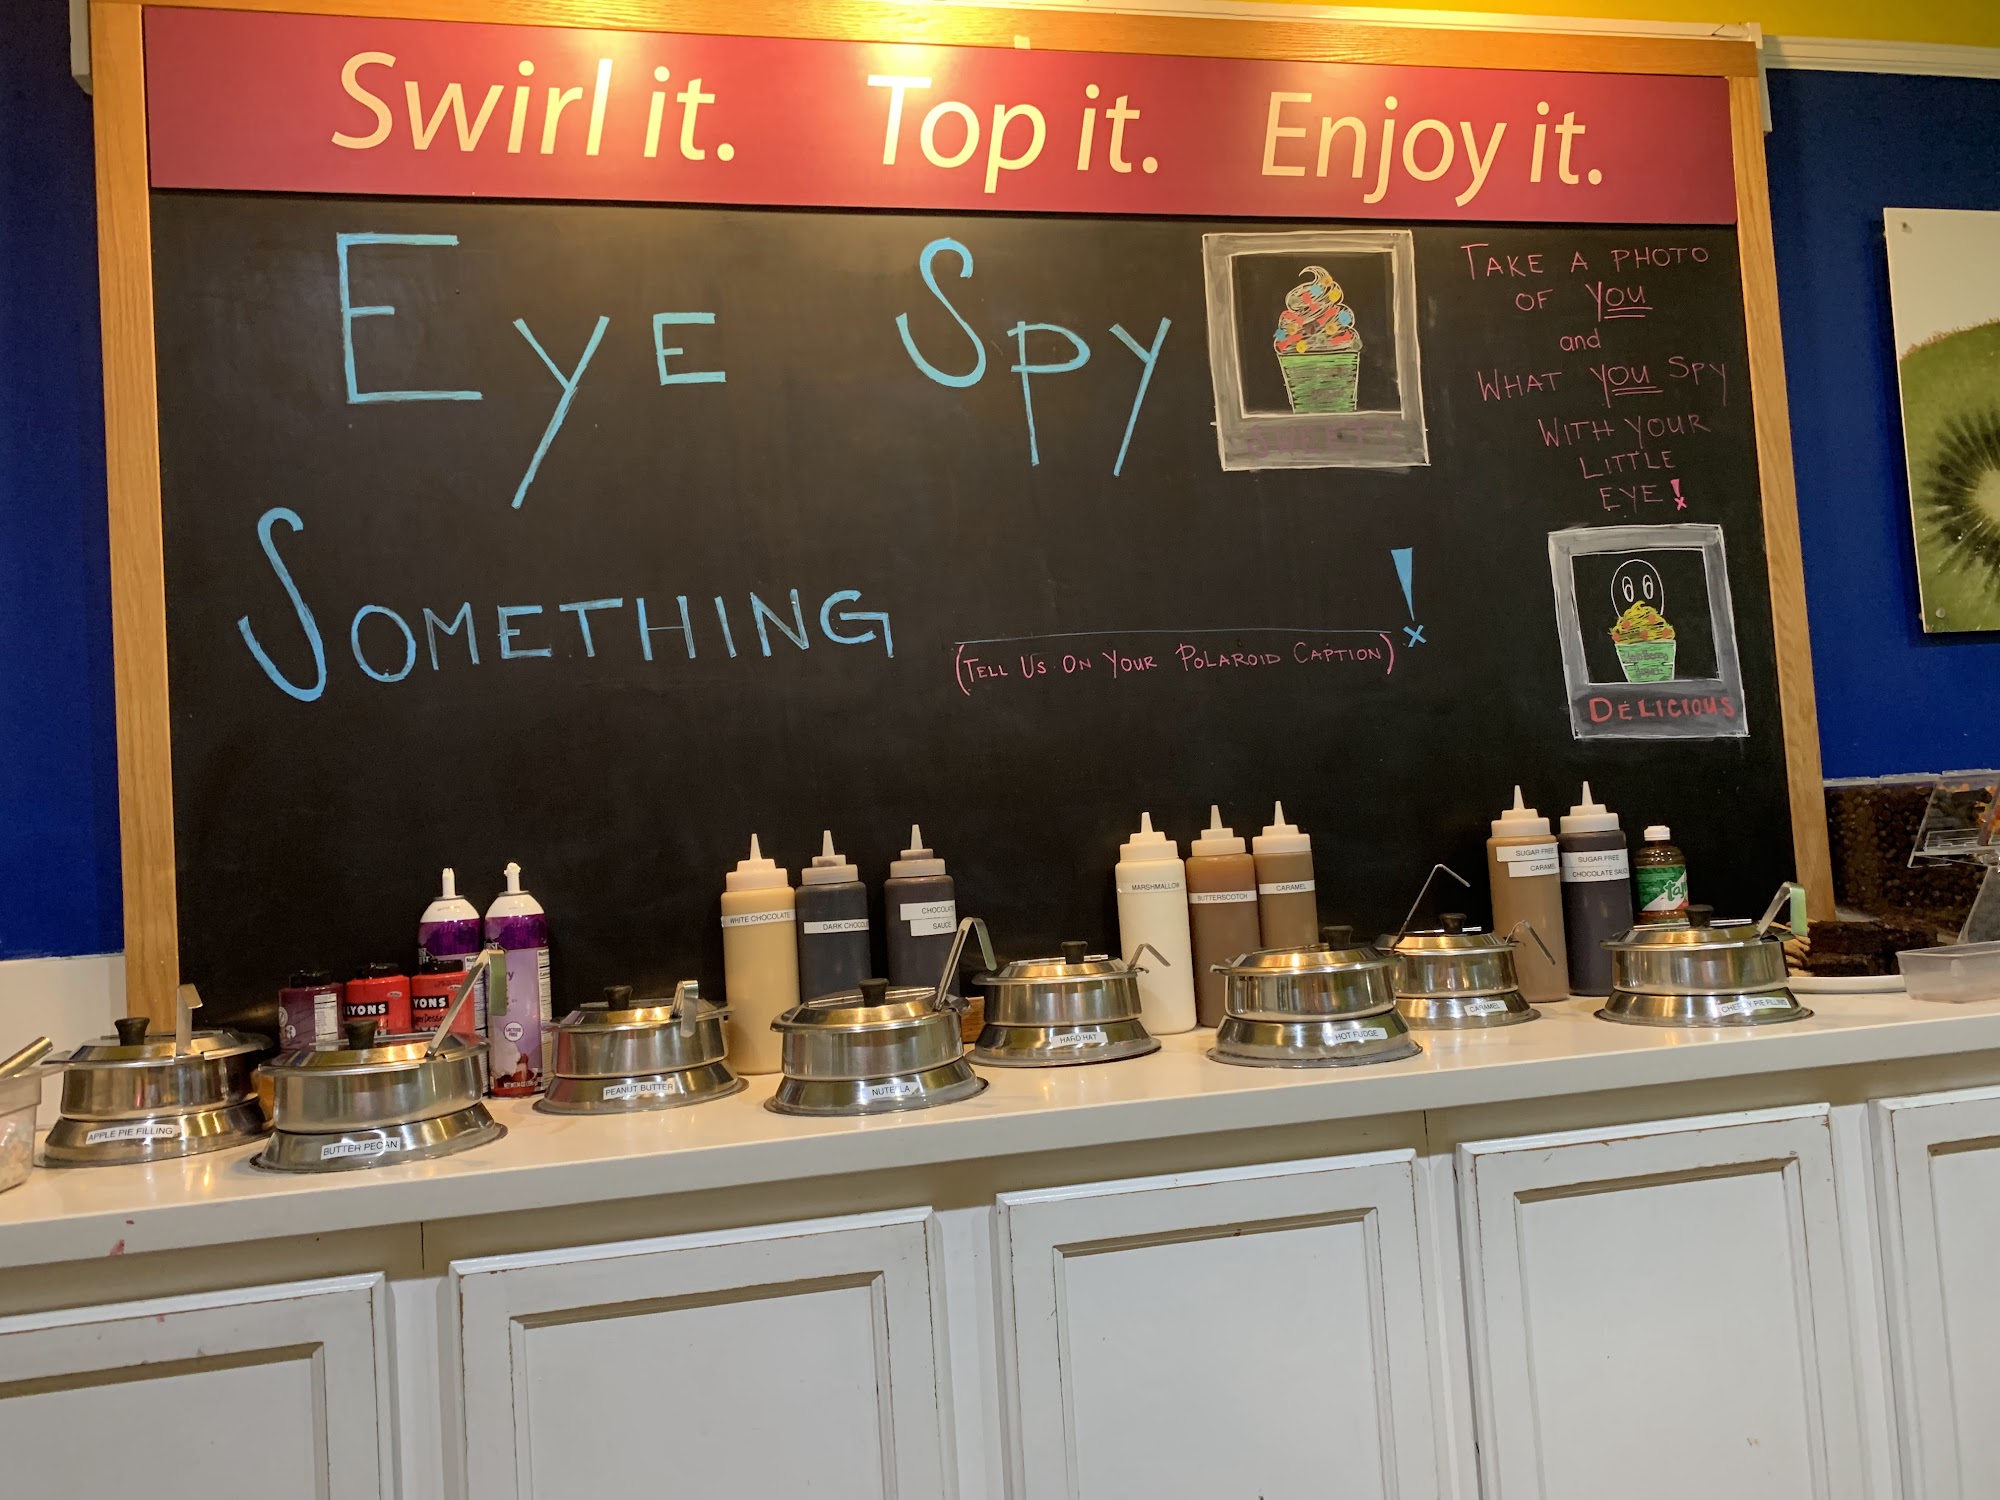 Swirl it. Top it. Enjoy it.
EyE Spy
SOMETHING !
(TELL US ON YOUR POLAROID CAPTION)
TAKE A PHOTO
OF YOU
and
WHAT YOU SPY
WITH YOUR
LITTLE
EYE!
SWEET!
DELICIOUS
WHITE CHOCOLATE
DARK CHOCOL
CHOCOLATE
SAUCE
MARSHMALLOW
BUTTERSCOTCH
CARAMEL
SUGAR FREE
CARAMEL
SUGAR FREE
CHOCOLATE SAUCE
LYONS
YONS
APPLE PIE FILLING
BUTTER PECAN
PEANUT BUTTER
NUTELLA
HARD HAT
HOT FUDGE
CARAMEL
CHERRY PIE FILLING